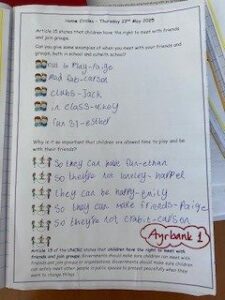 Home Circles – Thursday 22nd May 2025
Article 15 states that children have the right to meet with friends
and join groups.
Can you give some examples of when you meet with your friends and
groups, both in school and outwith school?
out to Play-Paige
Mad Lab-carson
clubs-Jack
in class-mikey
fun 31-esther
Why is it so important that children are allowed time to play and be
with their friends?
So they can have fun-ethan
So they're not lonely-harper
they can be happy-Emily
So they can make friends-Paige
So they're not crabit-carson
Ayrbank 1
Article 15 of the UNCRC states that children have the right to meet with
friends and join groups. Governments should make sure children can meet with
friends and join groups or organisations. Governments should make sure children
can safely meet other people in public spaces to protest peacefully when they
want to change things